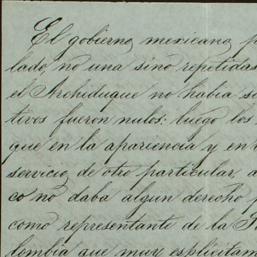 El gobierno mexicano, p
lado, no una sino repetidas
el Archiduque no habia si
tivos fueron nulos: luego los
que en la apariencia y en
servicio de otro particular, a
co no daba algun derecho p
como representante de la R
lombia que muy esplicitam